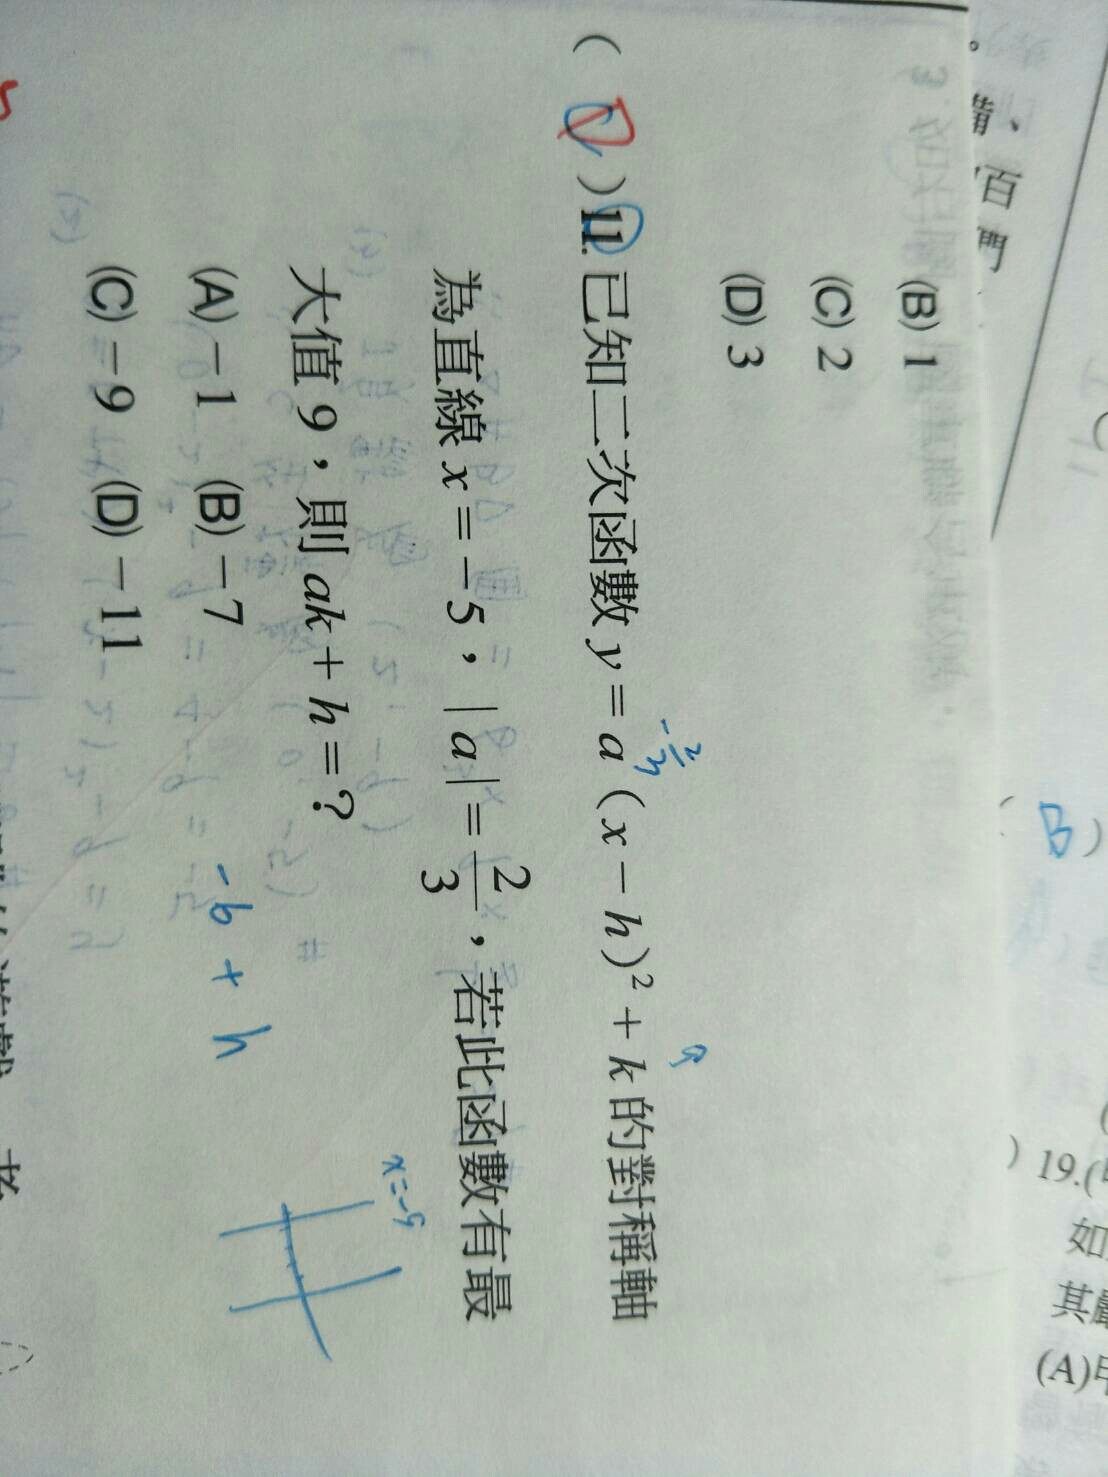 (B) 1
(C) 2
(D) 3
( )11. 已知二次函數 y = a (x − h)² + k 的對稱軸
為直線 x = −5，| a | = 2/3，若此函數有最
大值 9，則 ak + h = ?
(A) −1 (B) −7
(C) −9 (D) −11
-2/3
9
-6 + h
x=-5
備、
百
們
( B )
) 19.(甲
如
其
(A)甲